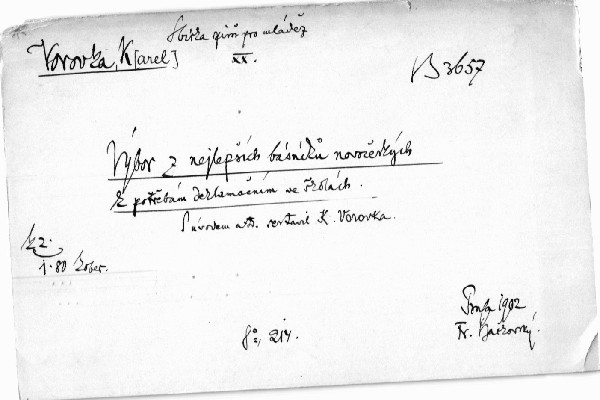 Sbírka spisů pro mládež
XX.
Vorovka, K[arel]
B 3657
Výbor z nejlepších básníků novočeských
K potřebám deklamačním ve školách.
Původem a t. d. sestavil K. Vorovka.
K 2.
1·80
Praha 1902
Fr. Bačkovský.
8°, 214.